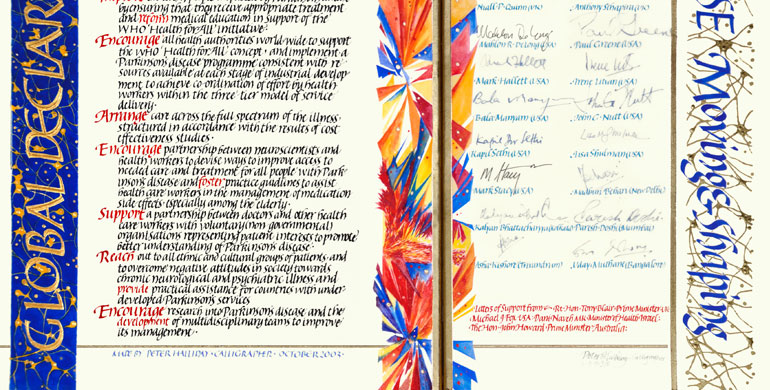 GLOBAL DECLAR
by ensuring that they receive appropriate treatment
and reform medical education in support of the
WHO 'Health for All' initiative
Encourage all health authorities world-wide to support
the WHO 'Health for All' concept and implement a
Parkinsons disease programme consistent with re-
sources available at each stage of industrial develop-
ment to achieve co-ordination of effort by health
workers within the three tier model of service
delivery
Arrange care across the full spectrum of the illness
structured in accordance with the results of cost
effectiveness studies
Encourage partnership between neuroscientists and
health workers to devise ways to improve access to
needed care and treatment for all people with Park-
insons disease and foster practice guidlines to assist
health care workers in the management of medication
side effects especially among the elderly
Support a partnership between doctors and other health
care workers with voluntary (non governmental)
organisations representing patient interests to promote
better understanding of Parkinsons disease
Reach out to all ethnic and cultural groups of patients and
to overcome negative attitudes in society towards
chronic neurological and psychiatric illness and
provide practical assistance for countries with under-
developed Parkinsons services
Encourage research into Parkinsons disease and the
development of multidisciplinary teams to improve
its management
MADE BY PETER HALLIDAY CALLIGRAPHER OCTOBER 2003
Niall P. Quinn (UK) Anthony Schapira (UK)
Mahlon R DeLong (USA) Paul Greene (USA)
Mark Hallett (USA) Irene Litvan (USA)
Bala Manyam (USA) John G. Nutt (USA)
Kapil Sethi (USA) Lisa Shulman (USA)
Mark Stacy (USA) Madhuri Behari (New Delhi)
Kalyan Bhattacharyya (Kolkata) Parish Doshi (Mumbai)
Asha Kishore (Trivandrum) Uday Muthane (Bangalore)
Letters of Support from Rt Hon Tony Blair Prime Minister UK
Michael J Fox USA Dani Naveh MK Minister of Health Israel
The Hon John Howard Prime Minister Australia
SE Moving & Shaping